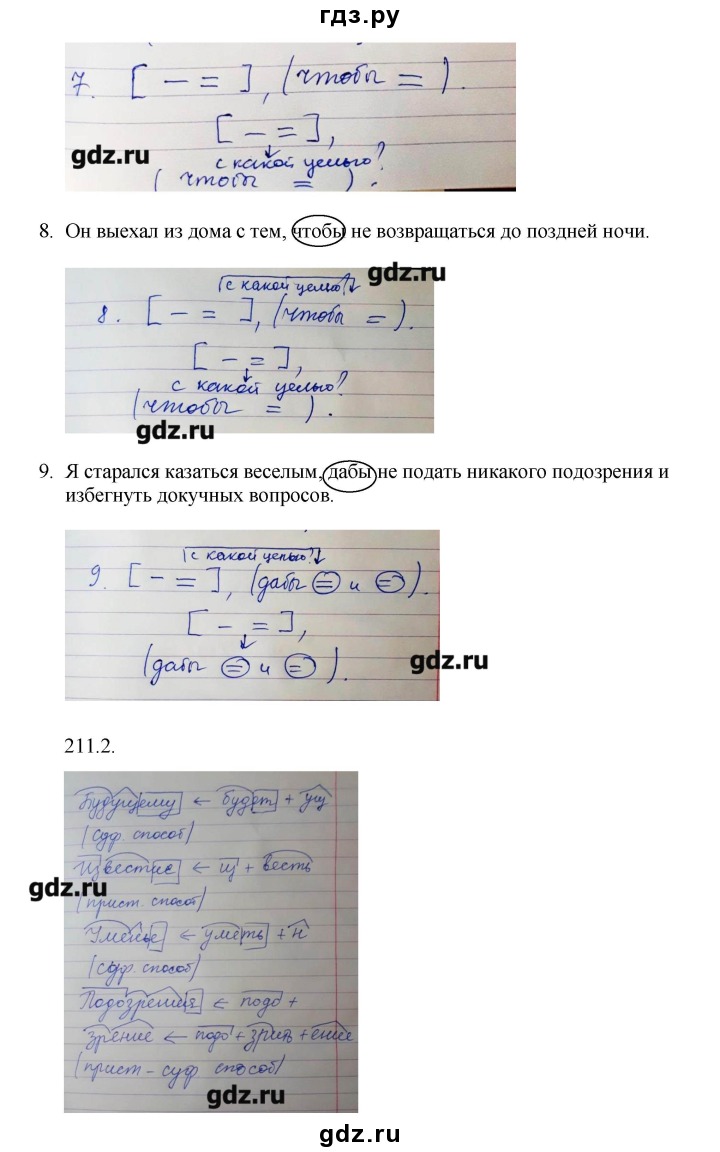 гдз.ру
7. [ – = ], (чтобы = ).
[ – = ],
с какой целью?
( чтобы = ).
gdz.ru
8. Он выехал из дома с тем, чтобы не возвращаться до поздней ночи.
gdz.ru
с какой целью?
8. [ – = ], (чтобы = ).
[ – = ],
с какой целью?
(чтобы = ).
gdz.ru
9. Я старался казаться веселым, дабы не подать никакого подозрения и
избегнуть докучных вопросов.
с какой целью?
9. [ – = ], (дабы = и = ).
[ – = ],
(дабы = и = ).
gdz.ru
211.2.
Будущему ← будет + ущ
(суф. способ)
Известие ← из + весть
gdz.ru
(прист. способ)
Уменье ← уметь + н
(суф. способ)
Подозрения ← подо +
зрение ← подо + зрить + ение
(прист – суф. способ)
gdz.ru
gdz.ru